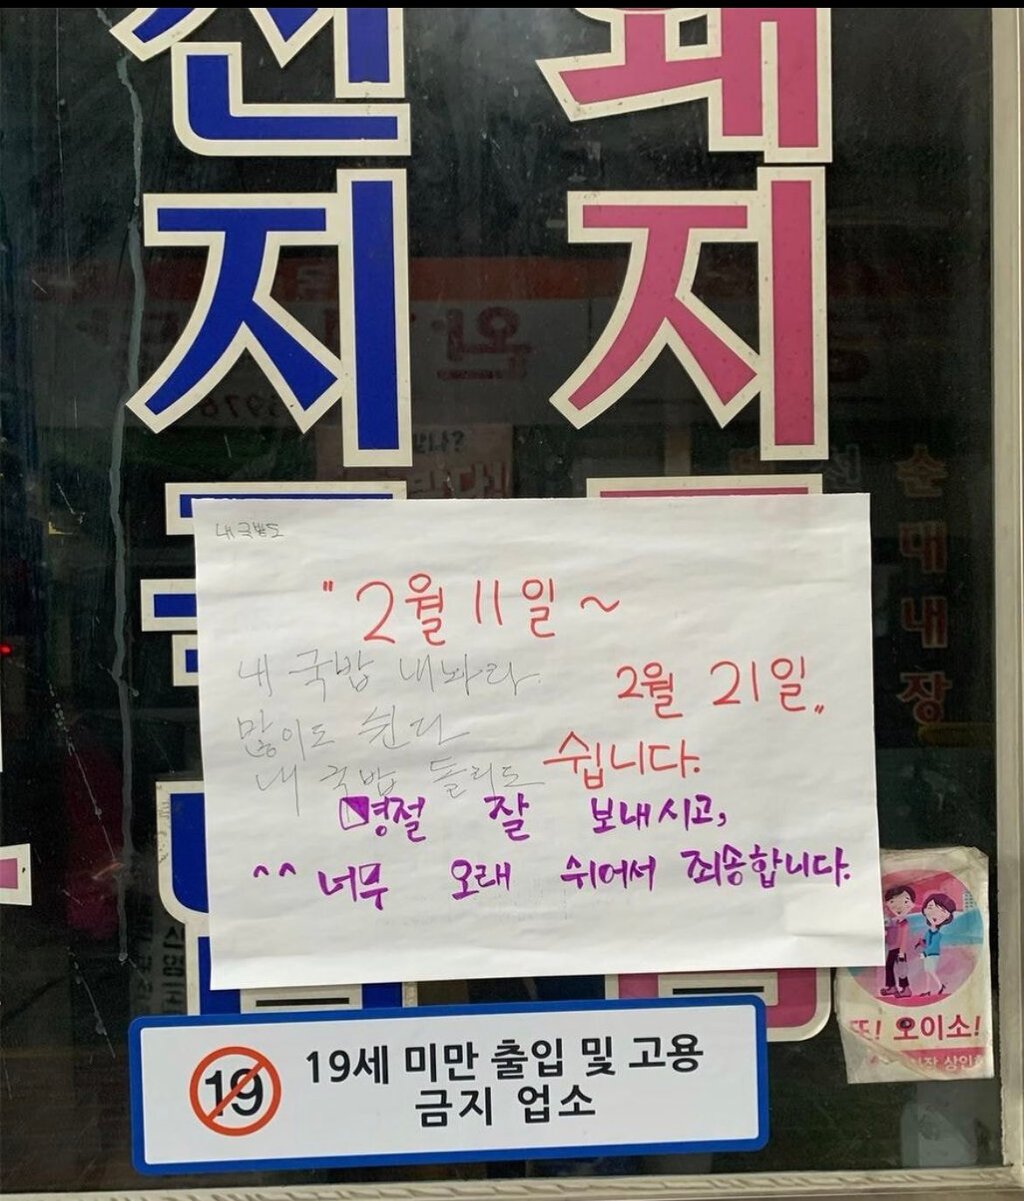 지
지
내 국밥도
"2월 11일 ~
2월 21일"
쉽니다.
내 국밥 내놔라
많이도 쉰다
내 국밥 돌리도
명절 잘 보내시고,
^^ 너무 오래 쉬어서 죄송합니다.
순대내장
또! 오이소!
19
19세 미만 출입 및 고용
금지 업소